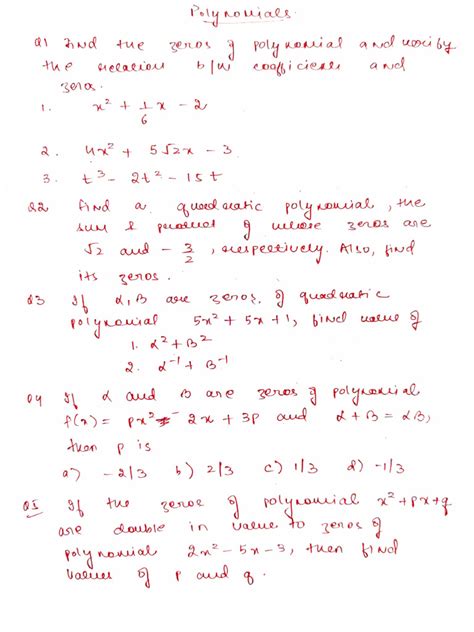 Polynomials
Q1 Find the zeros of polynomial and verify
the relation b/w coefficients and
zeros.
1. x² + 1/6 x - 2
2. 4x² + 5√2x - 3
3. t³ - 2t² - 15t
Q2 Find a quadratic polynomial, the
sum & product of whose zeros are
√2 and - 3/2, respectively. Also, find
its zeros.
Q3 If α, β are zeros of quadratic
polynomial 5x² + 5x + 1, find value of
1. α² + β²
2. α⁻¹ + β⁻¹
Q4 If α and β are zeros of polynomial
f(x) = px² - 2x + 3p and α + β = αβ,
then p is
a) -2/3 b) 2/3 c) 1/3 d) -1/3
Q5 If the zeros of polynomial x² + px + q
are double in value to zeros of
polynomial 2x² - 5x - 3, then find
values of p and q.